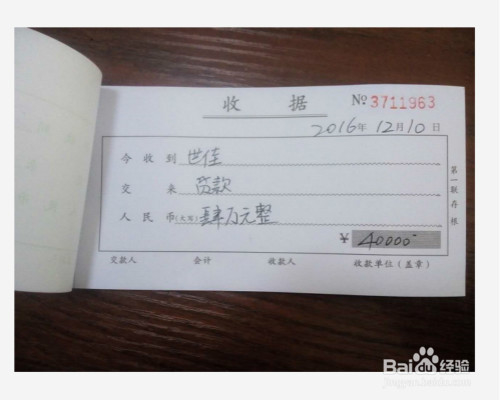 收 据 № 3711963
2016年12月10日
今收到 世佳
交来 货款
人民币(大写) 肆万元整
¥ 40000
交款人 会计 收款人 收款单位（盖章）
第一联存根
Baidu 经验
jingyan.baidu.com